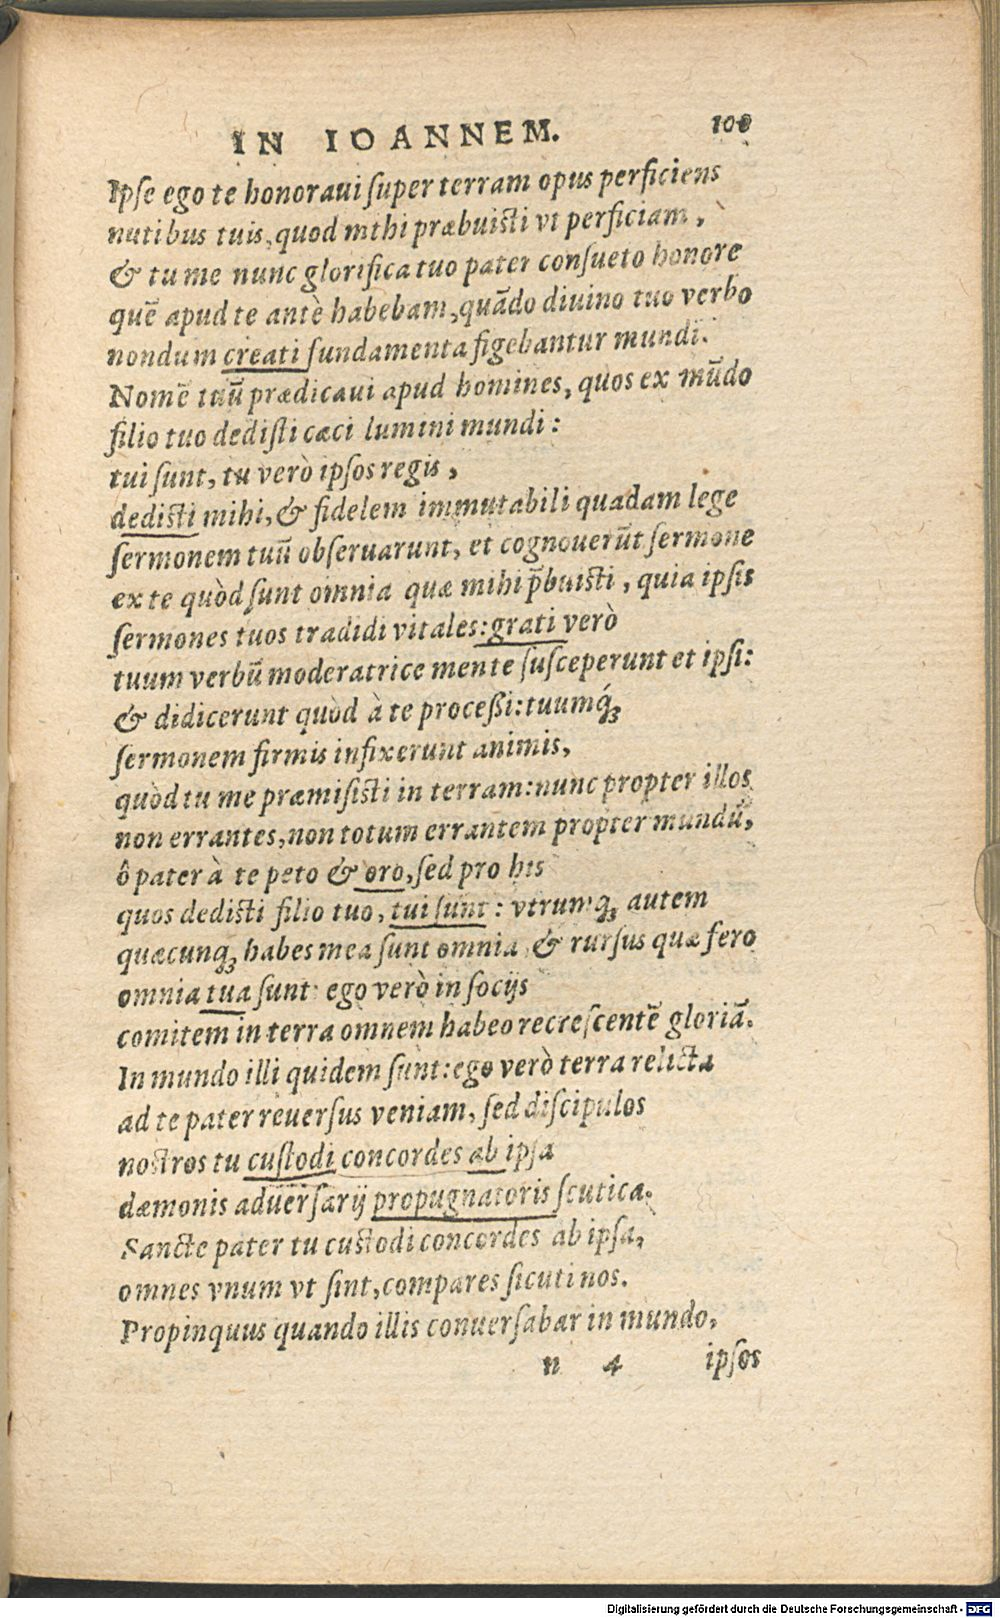 IN IOANNEM. 100
Ipse ego te honoraui super terram opus perficiens
nutibus tuis, quod mihi præbuisti vt perficiam,
& tu me nunc glorifica tuo pater consueto honore
quē apud te antè habebam, quādo diuino tuo verbo
nondum creati fundamenta figebantur mundi.
Nomē tuū prædicaui apud homines, quos ex mūdo
filio tuo dedisti cæci lumini mundi:
tui sunt, tu verò ipsos regis,
dedisti mihi, & fidelem immutabili quadam lege
sermonem tuū obseruarunt, et cognouerūt sermone
ex te quòd sunt omnia quæ mihi p̄buisti, quia ipsis
sermones tuos tradidi vitales: grati verò
tuum verbū moderatrice mente susceperunt et ipsi:
& didicerunt quòd à te processi: tuumq́;
sermonem firmis infixerunt animis,
quòd tu me præmisisti in terram: nunc propter illos
non errantes, non totum errantem propter mundū,
ô pater à te peto & oro, sed pro his
quos dedisti filio tuo, tui sunt: vtrumq; autem
quæcunq; habes mea sunt omnia & rursus quæ fero
omnia tua sunt ego verò in socijs
comitem in terra omnem habeo recrescentē gloriā.
In mundo illi quidem sunt: ego verò terra relicta
ad te pater reuersus veniam, sed discipulos
nostros tu custodi concordes ab ipsa
dæmonis aduersarij propugnatoris scutica.
Sancte pater tu custodi concordes ab ipsa,
omnes vnum vt sint, compares sicuti nos.
Propinquus quando illis conuersabar in mundo,
n 4 ipsos
Digitalisierung gefördert durch die Deutsche Forschungsgemeinschaft - DFG